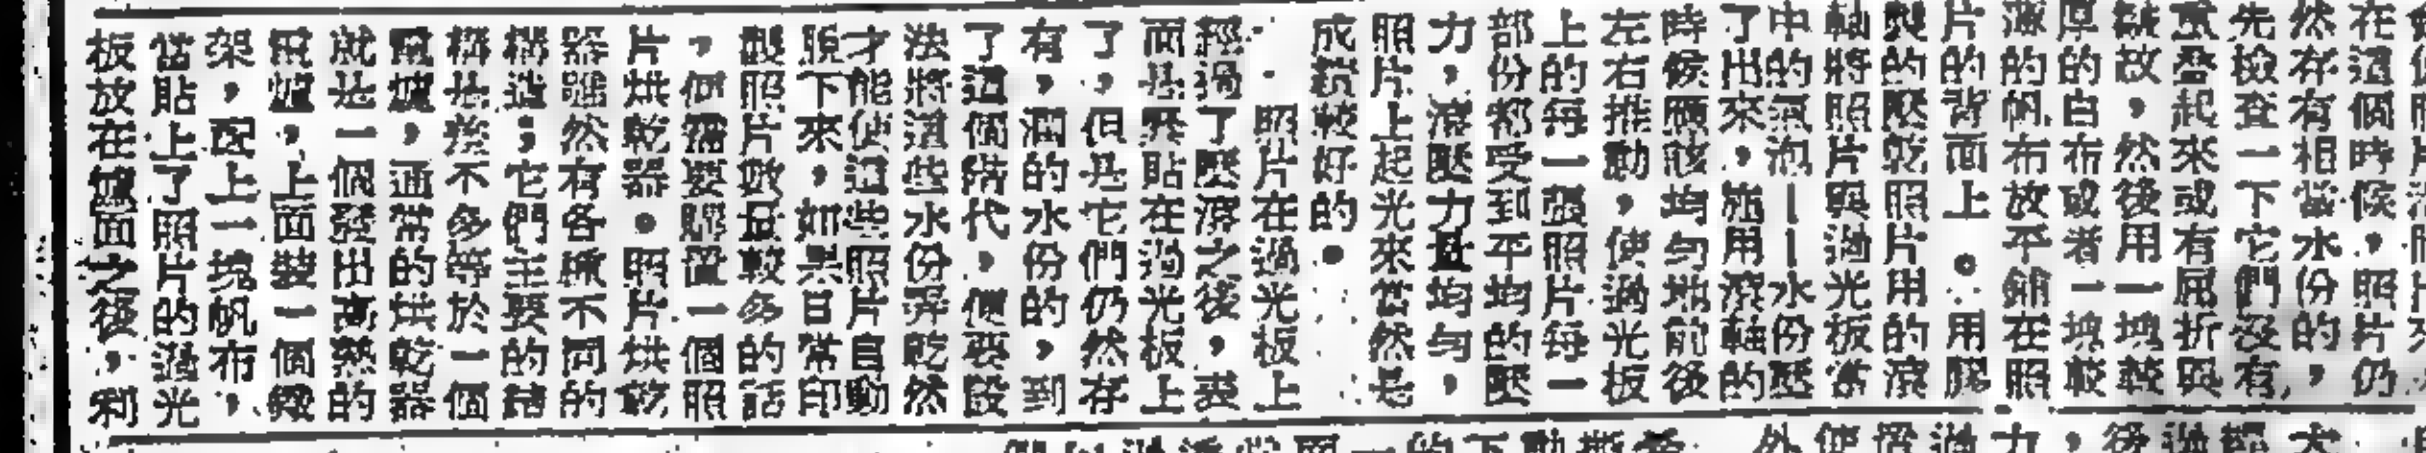 在這個時候，照片仍
然存有相當水份的，
先檢查一下它們沒有
重叠起來或有屈折與
皺故，然後用一塊較
厚的白布或者一塊較
薄的帆布放平鋪在照
片的背面上。用膠
製的壓乾照片用的滾
軸將照片與過光板當
中的氣泡——水份壓
了出來，施用滾軸的
時候應該均勻地前後
左右推動，使過光板
上的每一張照片每一
部份都受到平均的壓
力，滾壓力量均勻，
照片上起光來當然是
成績較好的。
照片在過光板上
經過了壓滾之後，表
面是緊貼在過光板上
了，但是它們仍然存
有，濕的水份的，到
了這個階代，便要設
法將這些水份弄乾然
才能使這些照片自動
脫下來，如果日常印
製照片數量較多的話
，便需要購置一個照
片烘乾器。照片烘乾
器雖然有各種不同的
構造；它們主要的結
構是差不多等於一個
電爐，通常的烘乾器
就是一個發出高熱的
電爐，上面裝一個
架，配上一塊帆布，
當貼上了照片的過光
板放在爐面之後，利